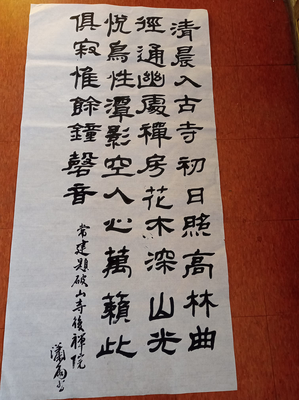 清晨入古寺初日照高林曲
徑通幽處禪房花木深山光
悦鳥性潭影空人心萬籟此
俱寂惟餘鐘磬音
常建題破山寺後禅院